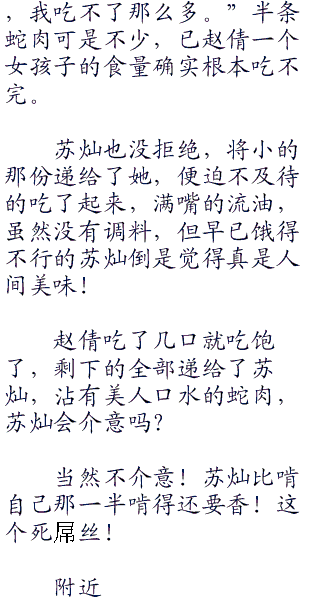 ，我吃不了那么多。”半条
蛇肉可是不少，已赵倩一个
女孩子的食量确实根本吃不
完。
苏灿也没拒绝，将小的
那份递给了她，便迫不及待
的吃了起来，满嘴的流油，
虽然没有调料，但早已饿得
不行的苏灿倒是觉得真是人
间美味！
赵倩吃了几口就吃饱
了，剩下的全部递给了苏
灿，沾有美人口水的蛇肉，
苏灿会介意吗？
当然不介意！苏灿比啃
自己那一半啃得还要香！这
个死屌丝！
附近